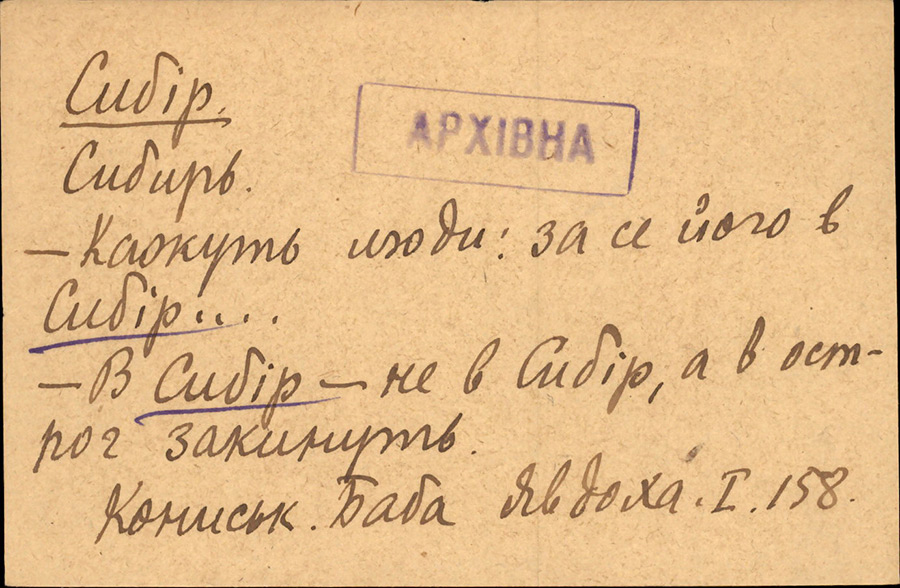 Сибір.
АРХІВНА
Сибирь.
— Кажуть люди: за се його в
Сибір....
— В Сибір — не в Сибір, а в ост-
рог закинуть.
Кониськ. Баба Явдоха. I. 158.